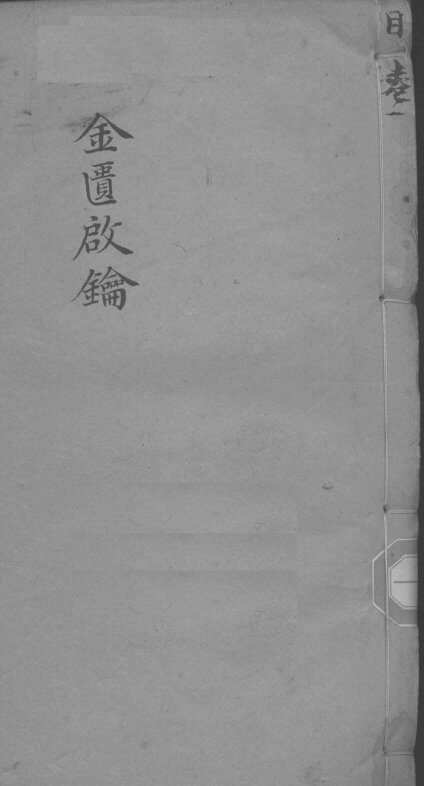 目 卷一
金匱啟鑰
一